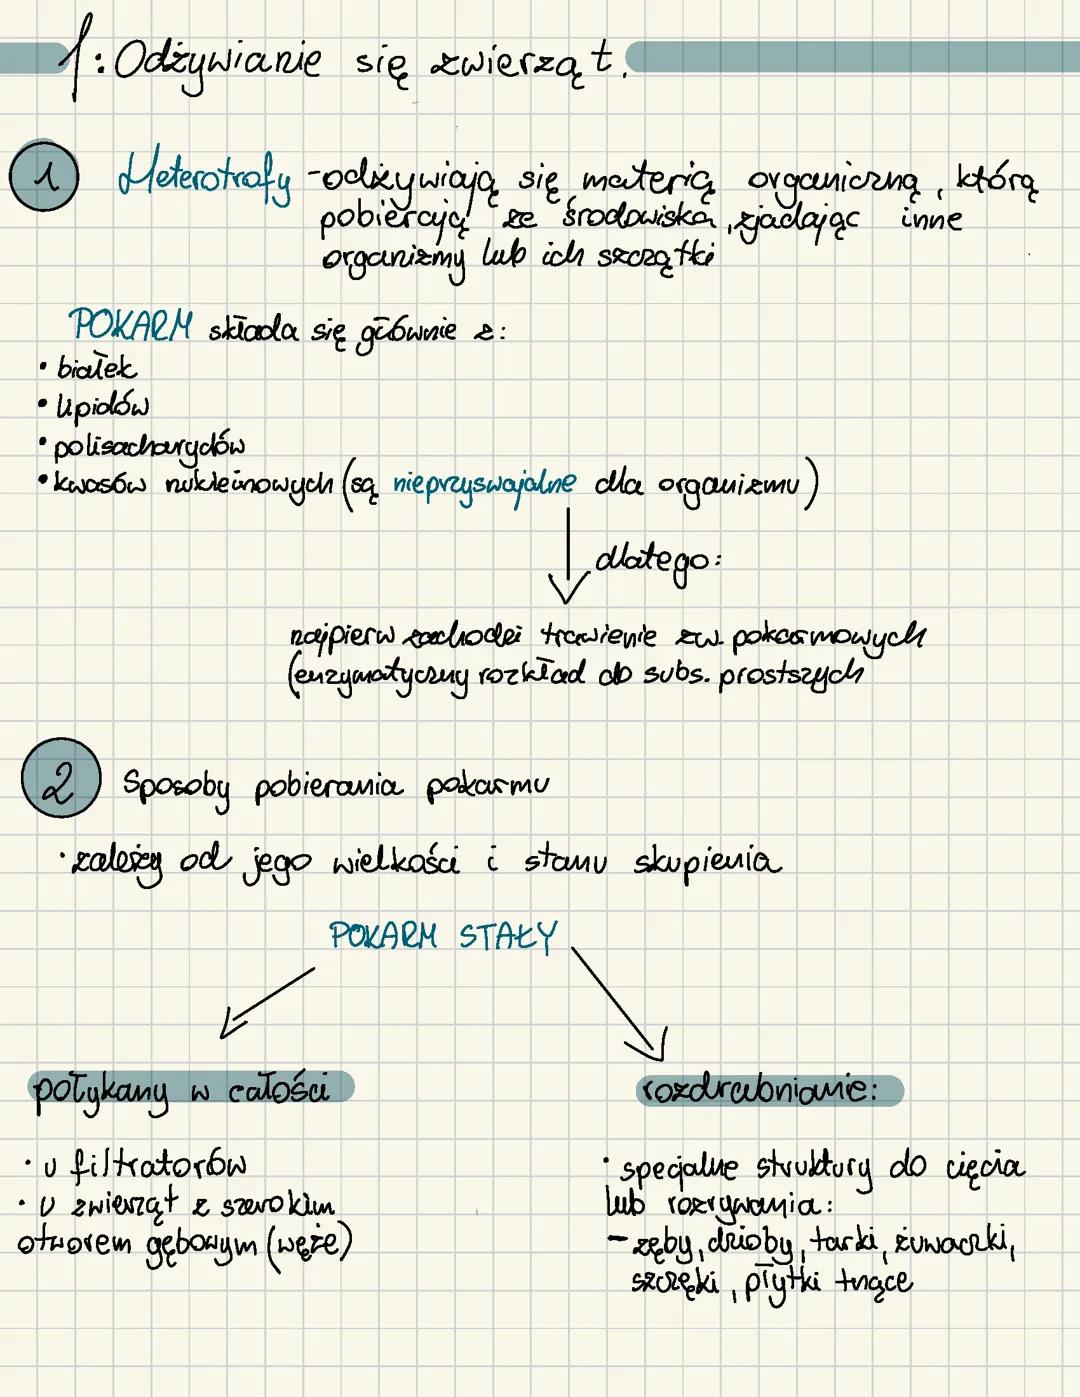 1. Odżywianie się zwierząt.
1 Heterotrofy - odżywiają się materią organiczną, którą
pobierają ze środowiska, zjadając inne
organizmy lub ich szczątki
POKARM składa się głównie z:
• białek
• lipidów
• polisacharydów
• kwasów nukleinowych (są nieprzyswajalne dla organizmu)
dlatego:
najpierw zachodzi trawienie zw. pokarmowych
(enzymatyczny rozkład do subs. prostszych
2 Sposoby pobierania pokarmu
• zależy od jego wielkości i stanu skupienia
POKARM STAŁY
połykany w całości
• u filtratorów
• u zwierząt z szerokim
otworem gębowym (węże)
rozdrabnianie:
• specjalne struktury do cięcia
lub rozrywania:
- zęby, dzioby, tarki, żuwaczki,
szczęki, płytki tnące